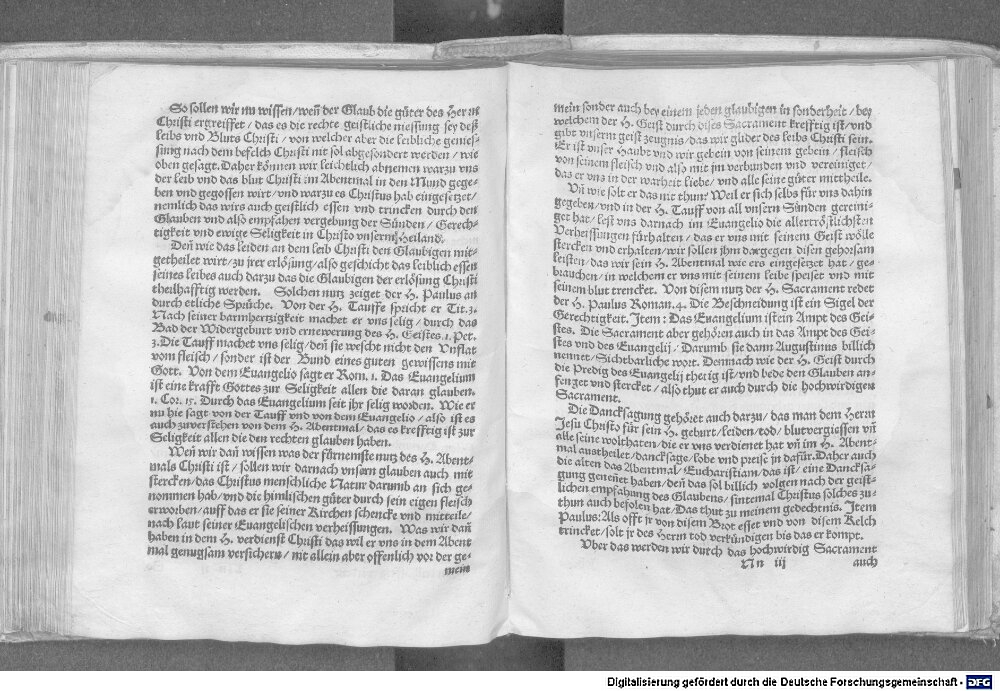 So sollen wir nu wissen/weñ der Glaub die güter des Herrn
Christi ergreiffet/das es die rechte geistliche niessung sey deß
leibs vnd Bluts Christi/von welcher aber die leibliche genies-
sung nach dem befelch Christi nit sol abgesondert werden/wie
oben gesagt. Daher können wir leichtlich abnemen warzu vns
der leib vnd das blut Christi im Abentmal in den Mund gege-
ben vnd gegossen wirt/vnd warzu es Christus hab eingesetzet/
nemlich das wirs auch geistlich essen vnd trincken durch den
Glauben vnd also empfahen vergebung der Sünden/Gerech-
tigkeit vnd ewige Seligkeit in Christo vnserm Heiland.
Deñ wie das leiden an dem leib Christi den Glaubigen mit-
getheilet wirt/zu jrer erlösung/also geschicht das leiblich essen
seines leibes auch darzu das die Glaubigen der erlösung Christi
theilhafftig werden. Solchen nutz zeiget der H. Paulus an
durch etliche Sprüche. Von der H. Tauffe spricht er Tit.3.
Nach seiner barmhertzigkeit machet er vns selig/durch das
Bad der Widergeburt vnd ernewerung des H. Geistes. 1. Pet.
3. Die Tauff machet vns selig/deñ sie wescht nicht den Vnflat
vom fleisch/sonder ist der Bund eines guten gewissens mit
Gott. Von dem Euangelio sagt er Rom. 1. Das Euangelium
ist eine krafft Gottes zur Seligkeit allen die daran glauben.
1. Cor. 15. Durch das Euangelium seit jhr selig worden. Wie er
nu hie sagt von der Tauff vnd von dem Euangelio/also ist es
auch zuverstehen von dem H. Abentmal/das es krefftig ist zur
Seligkeit allen die den rechten glauben haben.
Weñ wir dañ wissen was der fürnemste nutz des H. Abent-
mals Christi ist/sollen wir darnach vnsern glauben auch mit
stercken/das Christus menschliche Natur darumb an sich ge-
nommen hab/vnd die himlischen güter durch sein eigen fleisch
erworben/auff das er sie seiner Kirchen schencke vnd mitteile/
nach laut seiner Euangelischen verheissungen. Was wir dañ
haben in dem H. verdienst Christi das wil er vns in dem Abent
mal genugsam versichern/nit allein aber offenlich vor der ge-
mein
mein sonder auch bey einem jeden glaubigen in sonderheit/bey
welchem der H. Geist durch dises Sacrament krefftig ist/vnd
gibt vnserm geist zeugnis/das wir glider des leibs Christi sein.
Er ist vnser Haubt vnd wir gebein von seinem gebein/fleisch
von seinem fleisch vnd also mit jm verbunden vnd vereiniget/
das er vns in der warheit liebe/vnd alle seine güter mittheile.
Vñ wie solt er das nit thun? Weil er sich selbs für vns dahin
gegeben/vnd in der H. Tauff von all vnsern Sünden gereini-
get hat/lest vns darnach im Euangelio die allertröstlichsten
Verheissungen fürhalten/das er vns mit seinem Geist wölle
stercken vnd erhalten/wir sollen jhm dargegen disen gehorsam
leisten/das wir sein H. Abentmal wie ers eingesetzet hat/ge-
brauchen/in welchem er vns mit seinem leibe speiset vnd mit
seinem blut trencket. Von disem nutz der H. Sacrament redet
der H. Paulus Roman. 4. Die Beschneidung ist ein Sigel der
Gerechtigkeit. Item: Das Euangelium ist ein Ampt des Gei-
stes. Die Sacrament aber gehören auch in das Ampt des Gei-
stes vnd des Euangelij/Darumb sie dann Augustinus billich
nennet/Sichtbarliche wort. Demnach wie der H. Geist durch
die Predig des Euangelij thetig ist/vnd bede den Glauben an-
fenget vnd stercket/also thut er auch durch die hochwirdigen
Sacrament.
Die Dancksagung gehöret auch darzu/das man dem Herrn
Jesu Christo für sein H. geburt/leiden/tod/blutvergiessen vñ
alle seine wolthaten/die er vns verdienet hat vñ im H. Abent-
mal austheilet/dancksage/lobe vnd preise jn dafür. Daher auch
die alten das Abentmal/Eucharistiam/das ist/eine Dancksa-
gung genenet haben/deñ das sol billich volgen nach der geist-
lichen empfahung des Glaubens/sintemal Christus solches zu-
thun auch befolen hat/Das thut zu meinem gedechtnis. Item
Paulus: Als offt jr von disem Brot esset vnd von disem Kelch
trincket/solt jr des Herrn tod verkündigen bis das er kompt.
Vber das werden wir durch das hochwirdig Sacrament
Nn iij auch
Digitalisierung gefördert durch die Deutsche Forschungsgemeinschaft - DFG